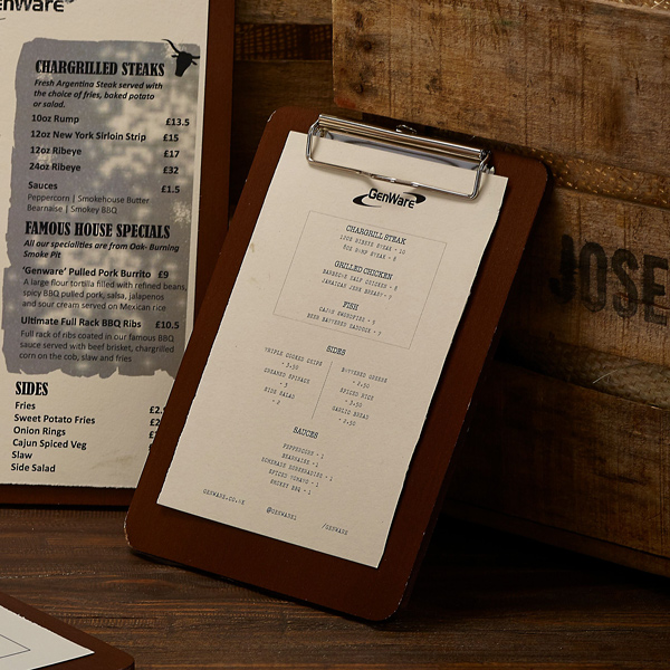 GenWare
CHARGRILLED STEAKS
Fresh Argentina Steak served with
the choice of fries, baked potato
or salad.
10oz Rump £13.5
12oz New York Sirloin Strip £15
12oz Ribeye £17
24oz Ribeye £32
Sauces £1.5
Peppercorn | Smokehouse Butter
Bearnaise | Smokey BBQ
FAMOUS HOUSE SPECIALS
All our specialities are from Oak- Burning
Smoke Pit
'Genware' Pulled Pork Burrito £9
A large flour tortilla filled with refined beans,
spicy BBQ pulled pork, salsa, jalapenos
and sour cream served on Mexican rice
Ultimate Full Rack BBQ Ribs £10.5
Full rack of ribs coated in our famous BBQ
sauce served with beef brisket, chargrilled
corn on the cob, slaw and fries
SIDES
Fries
Sweet Potato Fries
Onion Rings
Cajun Spiced Veg
Slaw
Side Salad
GenWare
CHARGRILL STEAK
10OZ RIBEYE STEAK - 10
8OZ RUMP STEAK - 8
GRILLED CHICKEN
BARBECUE HALF CHICKEN - 8
JAMAICAN JERK BREAST - 7
FISH
CAJUN SWORDFISH - 9
BEER BATTERED HADDOCK - 7
SIDES
TRIPLE COOKED CHIPS
- 3.50
CREAMED SPINACH
- 3
SIDE SALAD
- 2
BUTTERED GREENS
- 2.50
SPICED RICE
- 3.50
GARLIC BREAD
- 2.50
SAUCES
PEPPERCORN - 1
BEARNAISE - 1
HOMEMADE HORSERADISH - 1
SPICED TOMATO - 1
SMOKEY BBQ - 1
GENWARE.CO.UK
@GENWARE1
/GENWARE
JOSE